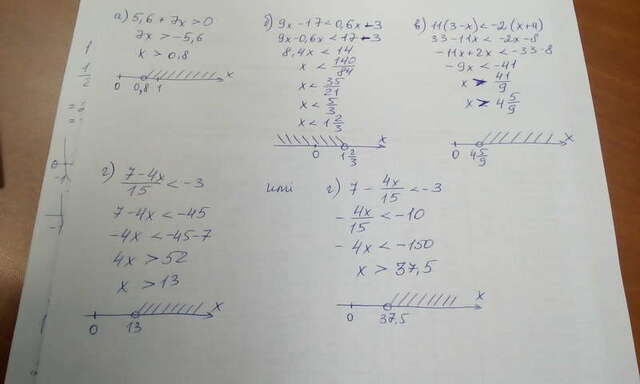 а) 5,6 + 7x > 0
7x > -5,6
x > 0,8
0 0,8 1 x
б) 9x - 17 < 0,6x - 3
9x - 0,6x < 17 - 3
8,4x < 14
x < 140/84
x < 35/21
x < 5/3
x < 1 2/3
0 1 2/3 x
в) 11(3-x) < -2(x+4)
33 - 11x < -2x - 8
-11x + 2x < -33 - 8
-9x < -41
x > 41/9
x > 4 5/9
0 4 5/9 x
г) (7-4x)/15 < -3
7-4x < -45
-4x < -45-7
4x > 52
x > 13
0 13 x
или
г) 7 - 4x/15 < -3
- 4x/15 < -10
- 4x < -150
x > 37,5
0 37,5 x
1
1/2